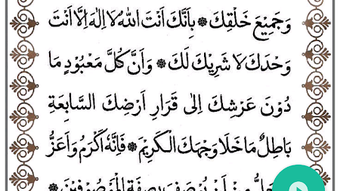 وَجَمِيعَ خَلْقِكَ ❊ بِاَنَّكَ اَنْتَ اللهُ لَا اِلٰهَ اِلَّا اَنْتَ
وَحْدَكَ لَا شَرِيْكَ لَكَ ❊ وَاَنَّ كُلَّ مَعْبُودٍ مَا
دُوْنَ عَرْشِكَ اِلٰى قَرَارِ اَرْضِكَ السَّابِعَةِ
بَاطِلٌ مَا خَلَا وَجْهَكَ الْكَرِيْمَ ❊ فَاِنَّهُ اَكْرَمُ وَاَعَزُّ
مِنْ اَنْ يُوْصَفَ بِصِفَةِ